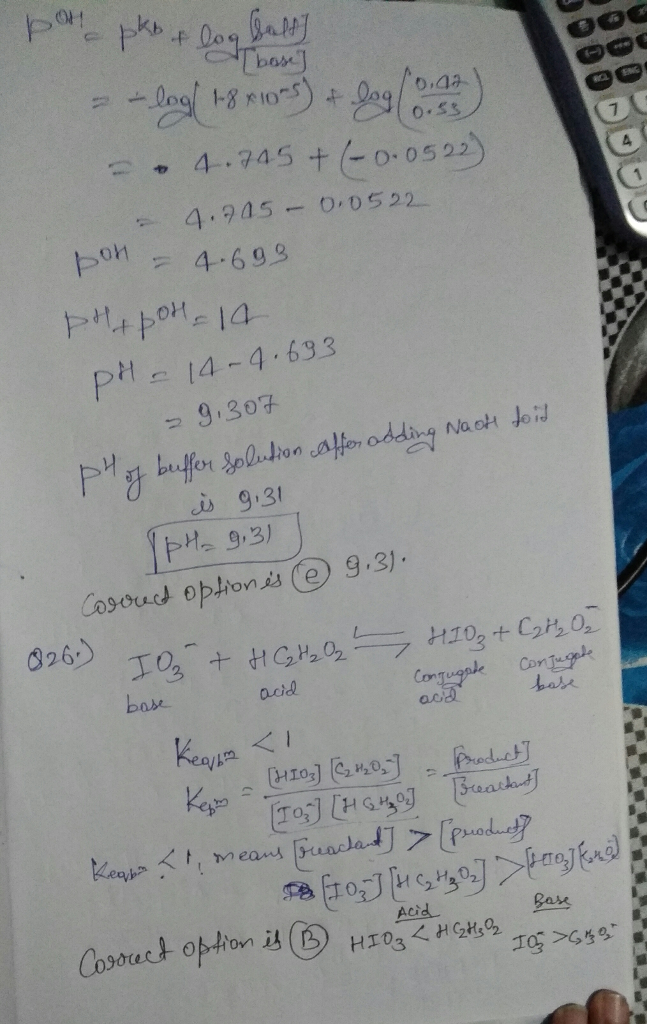 pOH = pKb + log [salt]/[base]
= -log(1.8×10-5) + log(0.47/0.53)
= 4.745 + (-0.0522)
= 4.745 - 0.0522
pOH = 4.693
pH + pOH = 14
pH = 14 - 4.693
= 9.307
pH of buffer solution after adding NaOH to it
is 9.31
pH = 9.31
Correct option is (e) 9.31.
Q26.) IO3- + HC2H2O2 ⇌ HIO3 + C2H2O2-
base acid conjugate acid conjugate base
Keqbm < 1
Keqm = [HIO3] [C2H2O2-] / [IO3-] [HC2H3O2] = [product] / [reactant]
Keqbm < 1, means [reactant] > [product]
[IO3-] [HC2H3O2] > [HIO3]
Acid Base
Correct option is (B) HIO3 < HC2H3O2 IO3- >
7
4
1